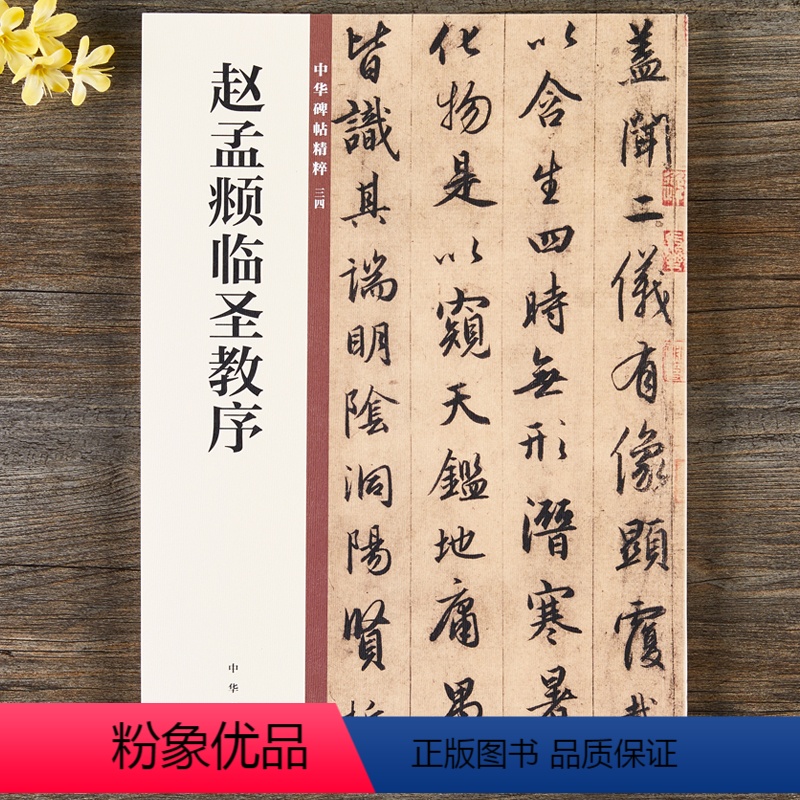 赵孟𫖯临圣教序
中华碑帖精粹 三四
蓋聞二儀有像顯覆
以含生四時無形潛寒暑
化物是以窺天鑑地庸
皆識其端明陰洞陽賢
中华
粉象优品
正版图书 品质保证